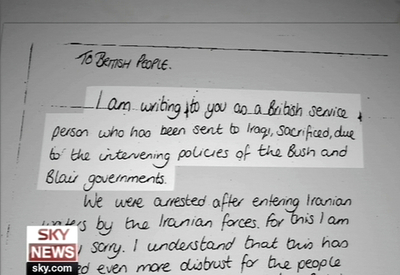 TO BRITISH PEOPLE.
I am writing to you as a British service
person who has been sent to Iraq, sacrificed, due
to the intervening policies of the Bush and
Blair governments.
We were arrested after entering Iranian
by the Iranian forces. For this I am
sorry. I understand that this has
even more distrust for the people
SKY
NEWS
sky.com